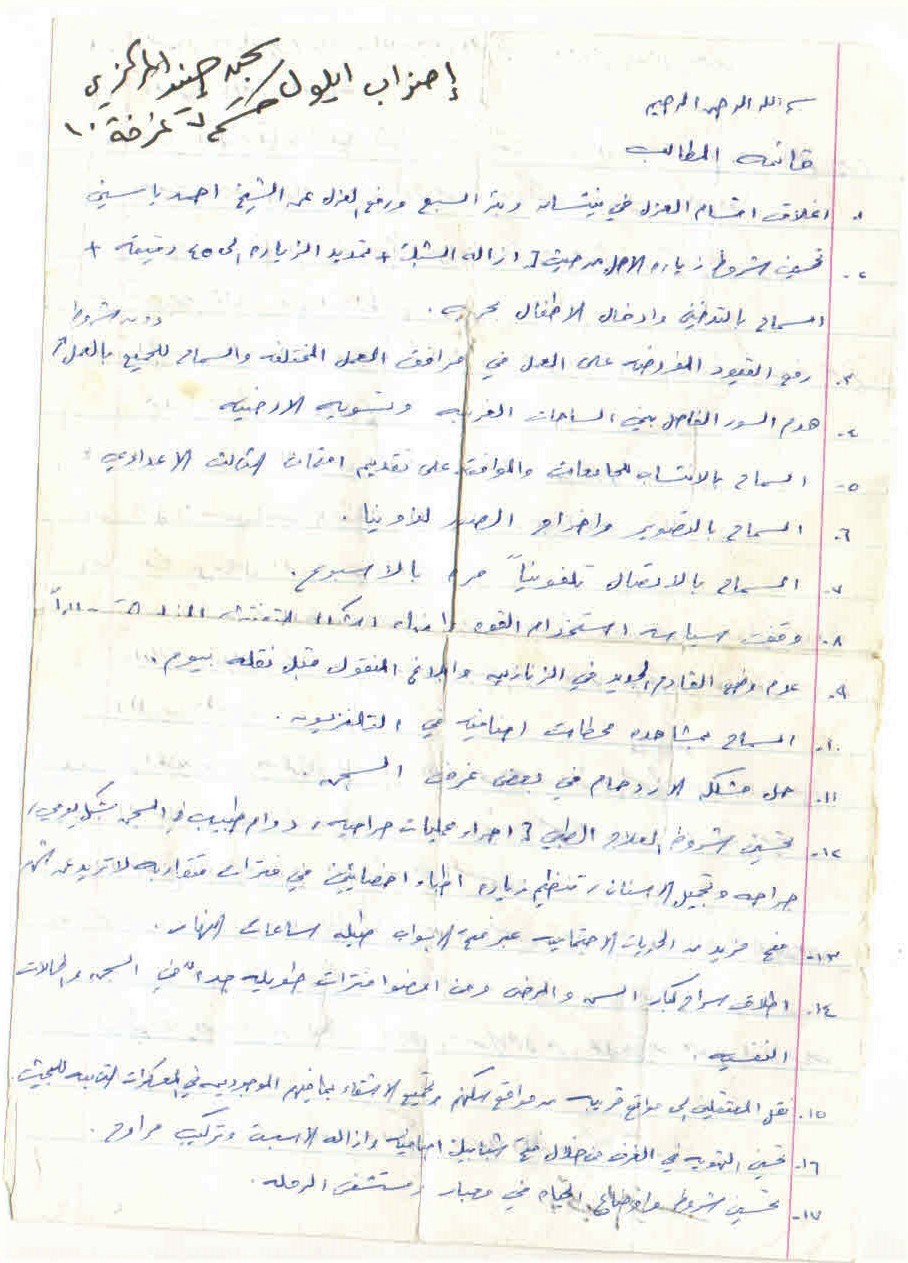 إضراب ايلول سجن هنداركزي
غرفة ١٠
بسم الله الرحمن الرحيم
قائمه المطالب
١- اغلاق اقسام العزل في نيتسان وبئر السبع ورفع العزل عن الشيخ احمد ياسين
٢- تحسين شروط زياره الاهل من حيث [ ازاله الشبك + تمديد الزياره الى ٤٥ دقيقه +
السماح بالتدخين وادخال الاطفال بحريه .
٣- رفع القيود المفروضه على العمل في مرافق العمل المختلفه والسماح للجميع بالعمل دون شروط
٤- هدم السور الفاصل بين الساحات الغربيه وتسويه الارضيه
٥- السماح بالانتساب للجامعات والموافقه على تقديم امتحان الثالث الاعدادي
٦- السماح بالتصوير واخراج الصور لذوينا .
٧- السماح بالاتصال تلفونياً مره بالاسبوع .
٨- وقف سياسه استخدام القوه
٩- عدم وضع القادم الجديد في الزنازين وابلاغ المنقول قبل نقله بيوم .
١٠- السماح بمشاهده محطات اضافيه في التلفزيون .
١١- حل مشكله الازدحام في بعض غرف السجن
١٢- تحسين شروط العلاج الطبي [ اجراء عمليات جراحيه ، دوام طبيب في السجن بشكل يومي ،
جراحه وتجميل الاسنان ، تنظيم زياره اطباء اخصائيين في فترات متقاربه لا تزيد عن شهر
١٣- منح مزيد من الحريات الاجتماعيه عبر فتح الابواب طيله ساعات النهار .
١٤- اطلاق سراح كبار السن والمرضى ومن امضوا فترات طويله جداً في السجن والحالات
النفسيه .
١٥- نقل المعتقلين الى مواقع قريبه من مواقع سكنهم وتجميع الاشقاء بما فيهم الموجودين في المعسكرات التابعه للجيش .
١٦- تحسين التهويه في الغرف من خلال فتح شبابيك اضافيه وازاله الاسبست وتركيب مراوح .
١٧- تحسين شروط واوضاع الحياه في معبار ومستشفى الرمله .